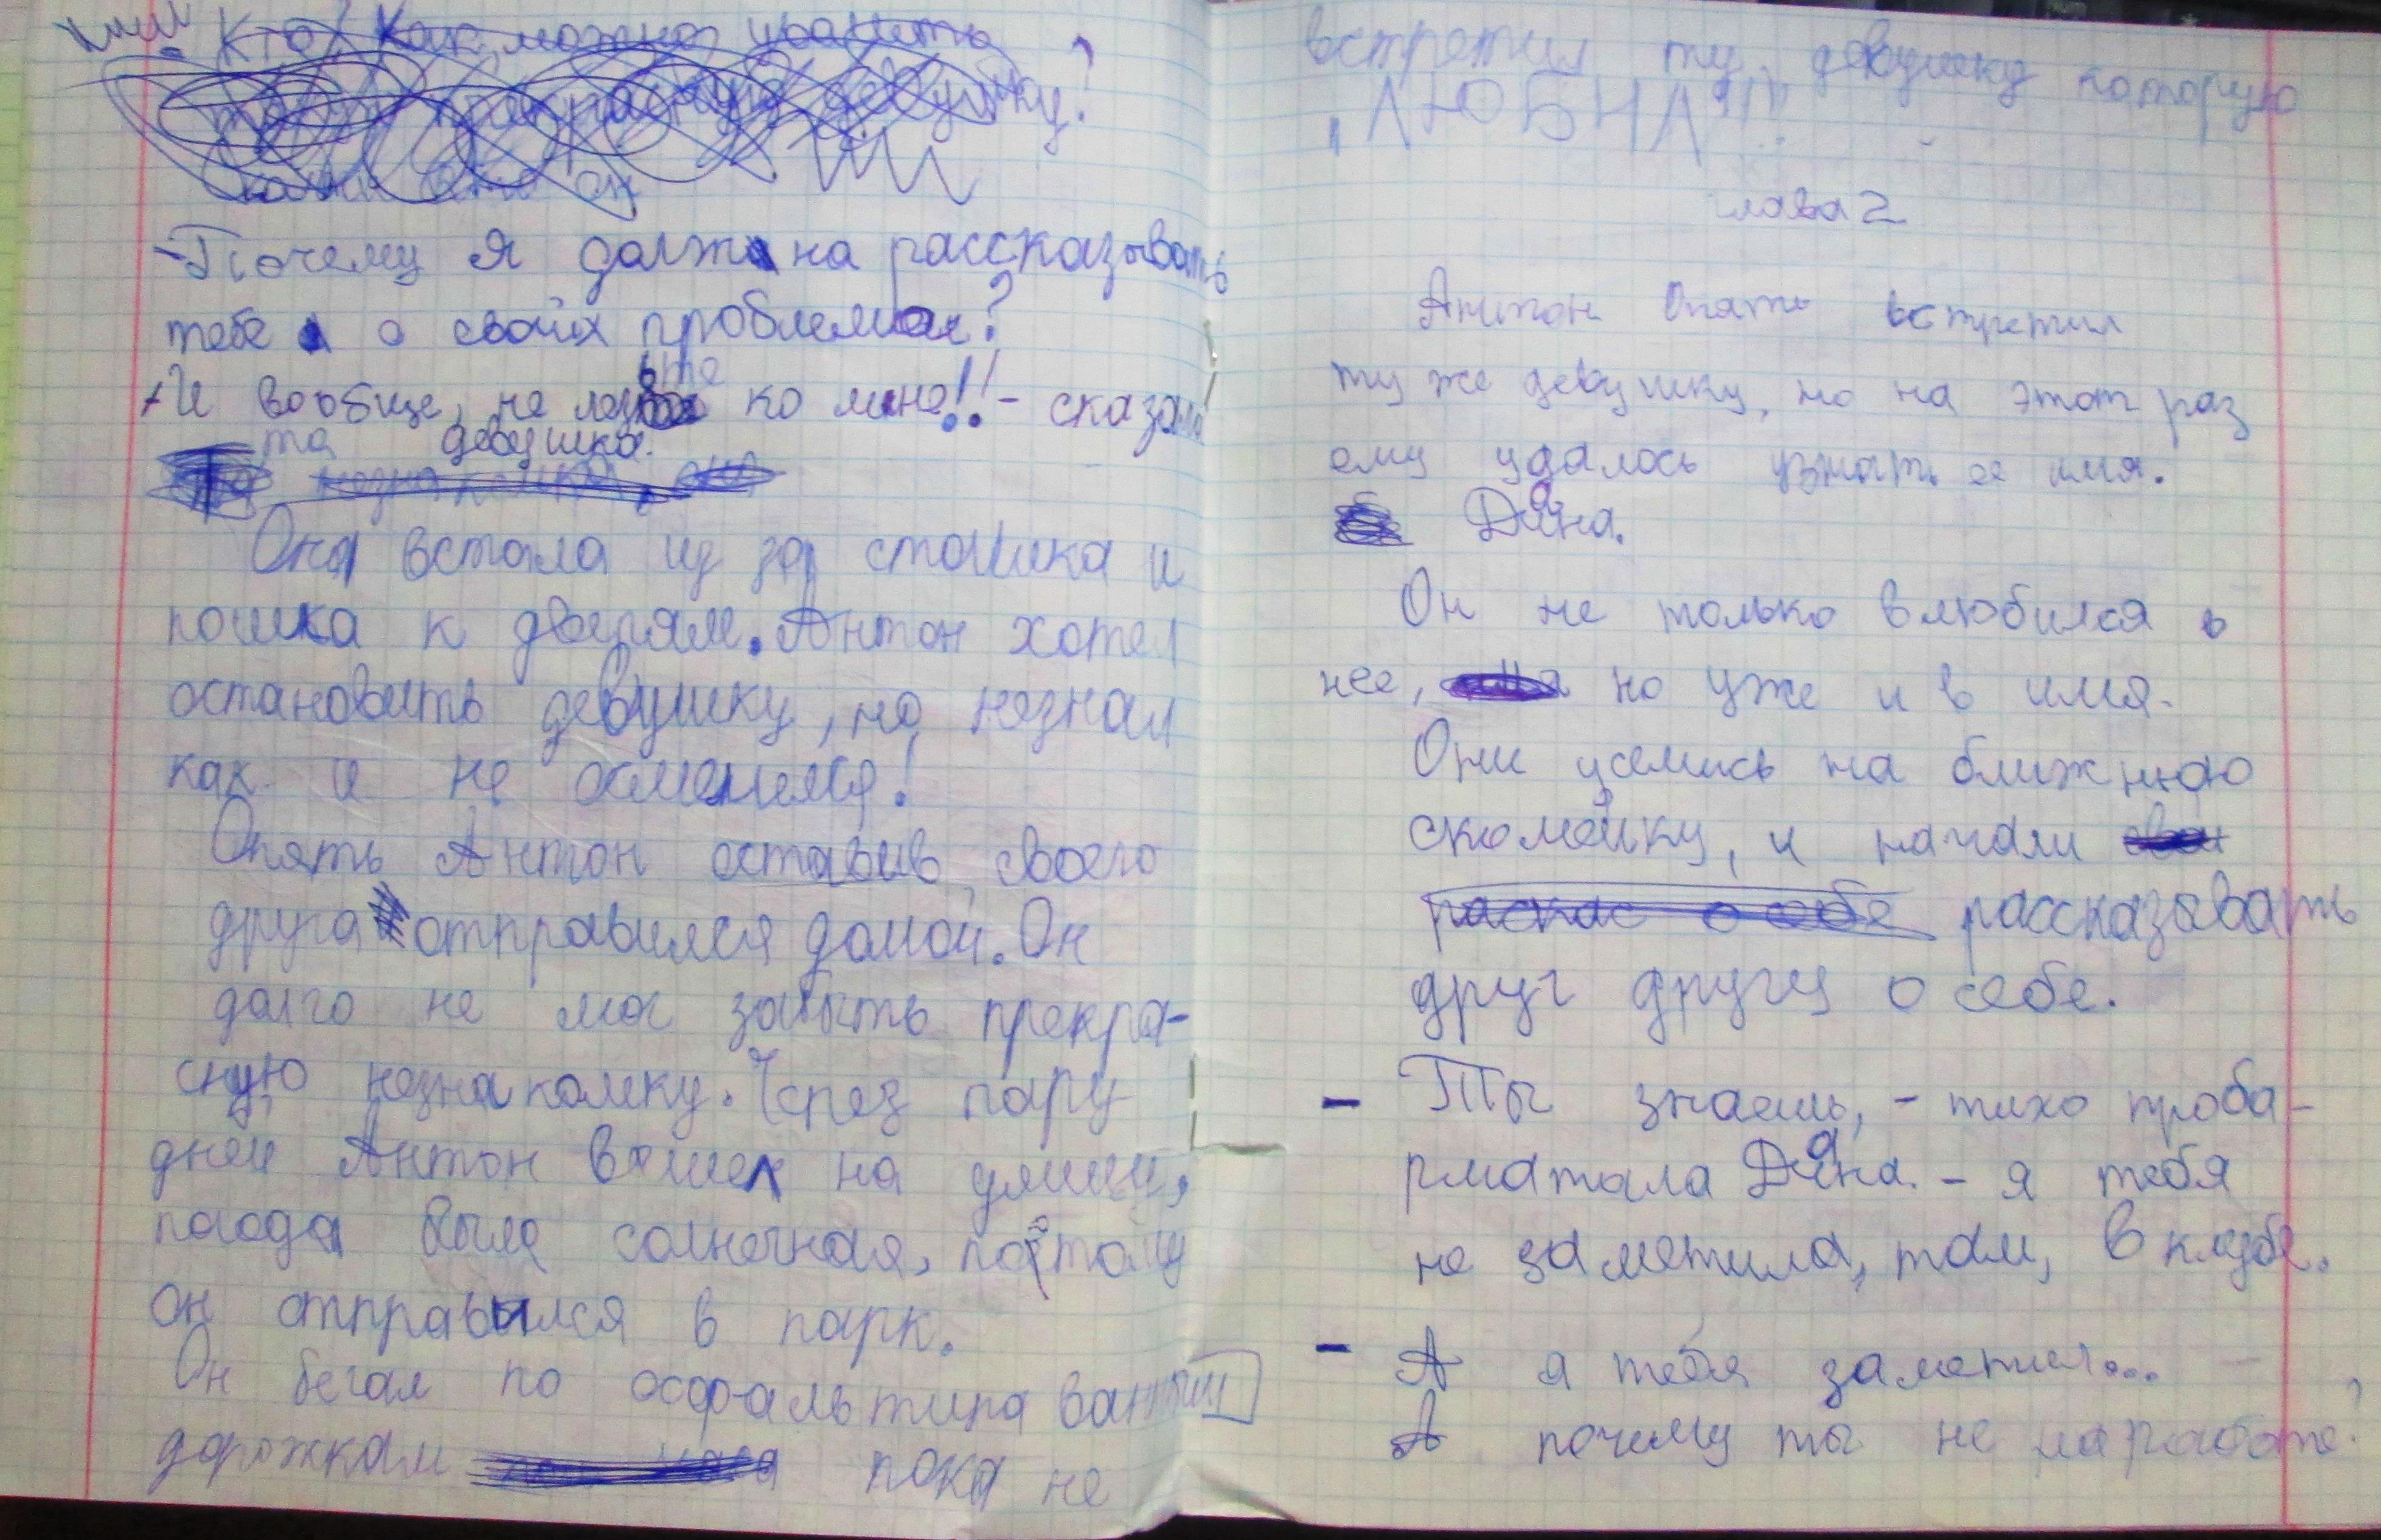 Кто? Как можно
такую прекрасную девушку?
-Почему я должна рассказывать
тебе о своих проблемах?
-И вообще, не лезьте ко мне!! - сказала
та девушка.
Она встала из за столика и
пошла к дверям. Антон хотел
остановить девушку, но незнал
как и не осмелился!
Опять Антон оставив своего
друга отправился домой. Он
долго не мог забыть прекра-
сную незнакомку. Через пару
дней Антон вышел на улицу,
погода была солнечная, поэтому
он отправился в парк.
Он бегал по осфальтированным
дорожкам пока не
встретил ту девушку которую
"ЛЮБИЛ"!!
глава 2
Антон Опять встретил
ту же девушку, но на этот раз
ему удалось узнать ее имя.
Даяна.
Он не только влюбился в
нее, но уже и в имя.
Они уселись на ближнюю
скомейку, и начали
раскас о себе рассказывать
друг другу о себе.
- Ты знаешь, - тихо проба-
рматала Даяна. - я тебя
не заметила, там, в клубе.
- А я тебя заметил...
А почему ты не на работе?